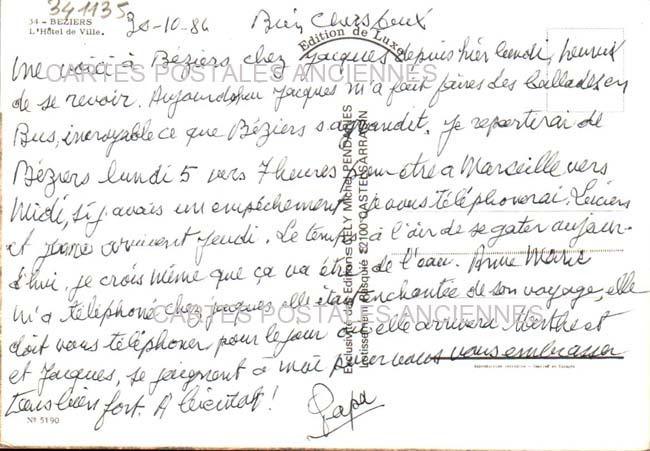 341135
34 - BÉZIERS
L'Hôtel de Ville.
30-10-84 Bien Chers
Edition de Luxe
Me voici à Béziers chez Jacques depuis hier lundi, heureux
CARTES POSTALES ANCIENNES
de se revoir. Aujourd'hui Jacques m'a fait faire des ballades en
Bus, incroyable ce que Béziers s'agrandit. Je repartirai de
Béziers lundi 5 vers 7 heures pour être à Marseille vers
Midi, si j'avais un empêchement je vous téléphonerai. Lucien
et arrivent jeudi. Le temps à l'air de se gater aujour-
d'hui, je crois même que ça va être de l'eau. Anne Marie
m'a téléphoné chez Jacques, elle était enchantée de son voyage, elle
CARTES POSTALES ANCIENNES
doit vous téléphoner pour le jour où elle arrivera Marthe et
et Jacques, se joignent à moi pour vous vous embrasser
tous bien fort. A bientôt!
Papa
N° 5190
Exclusivité des Editions Michel PENDARIES
82100 CASTELSARRASIN